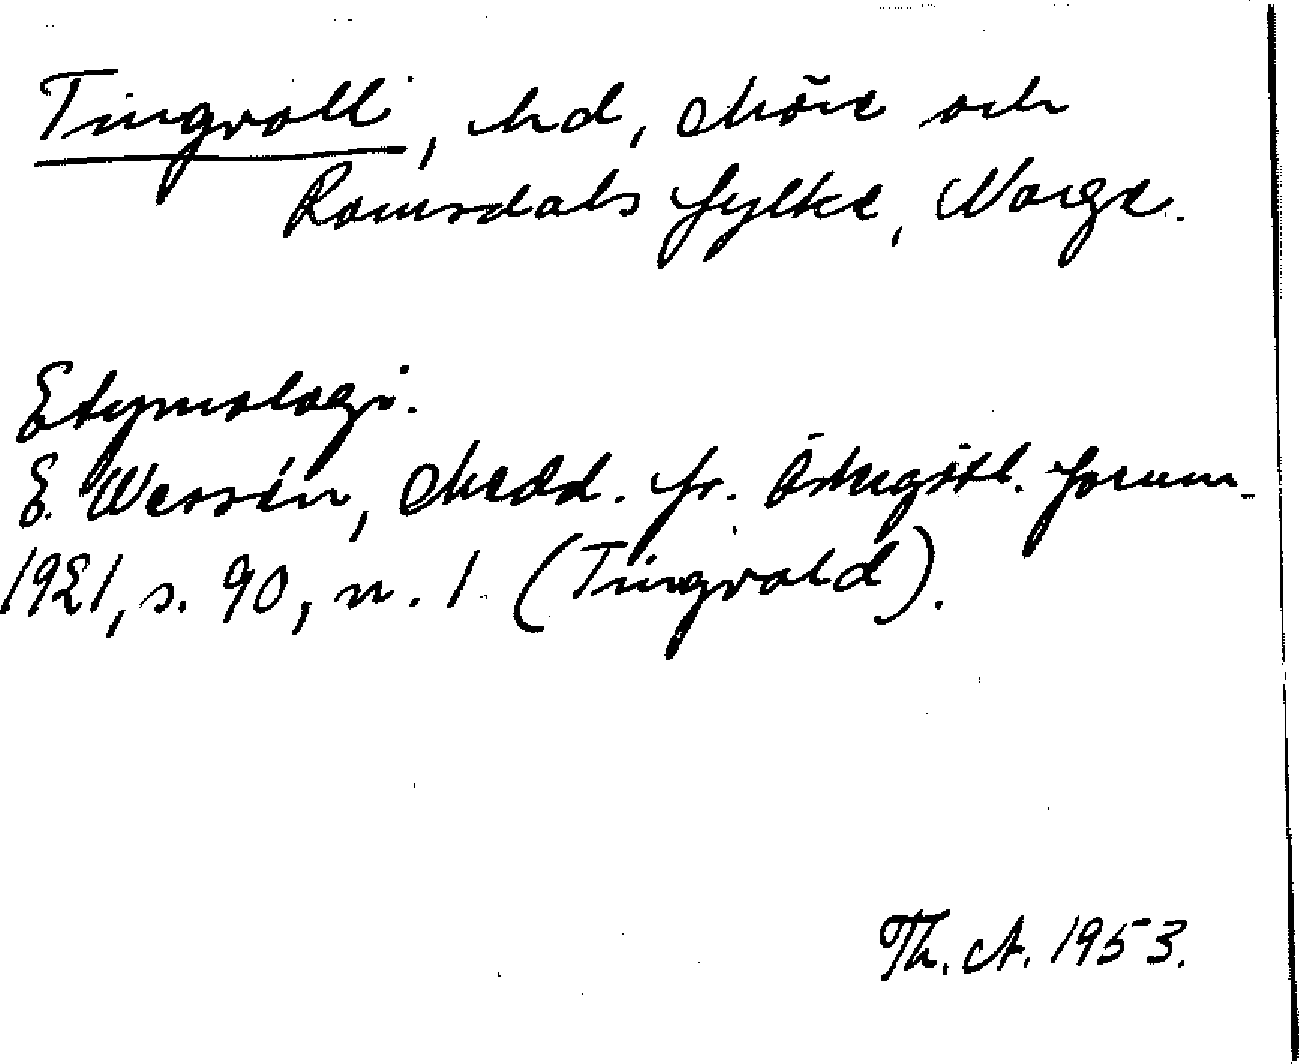 Tingvoll, hd, Möre och
Romsdals fylke, Norge.
Etymologi.
E. Wessén, Medd. fr. Östergötl. fornm-
1921, s. 90, n. 1 (Tingvold).
Th. A. 1953.